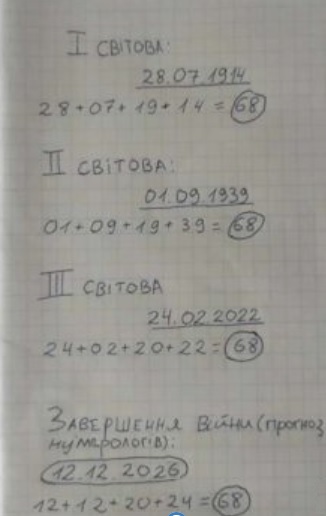 I СВІТОВА:
28.07.1914
28+07+19+14=68
II СВІТОВА:
01.09.1939
01+09+19+39=68
III СВІТОВА
24.02.2022
24+02+20+22=68
ЗАВЕРШЕННЯ Війни (прогноз
нумерологів):
12.12.2026
12+12+20+24=68